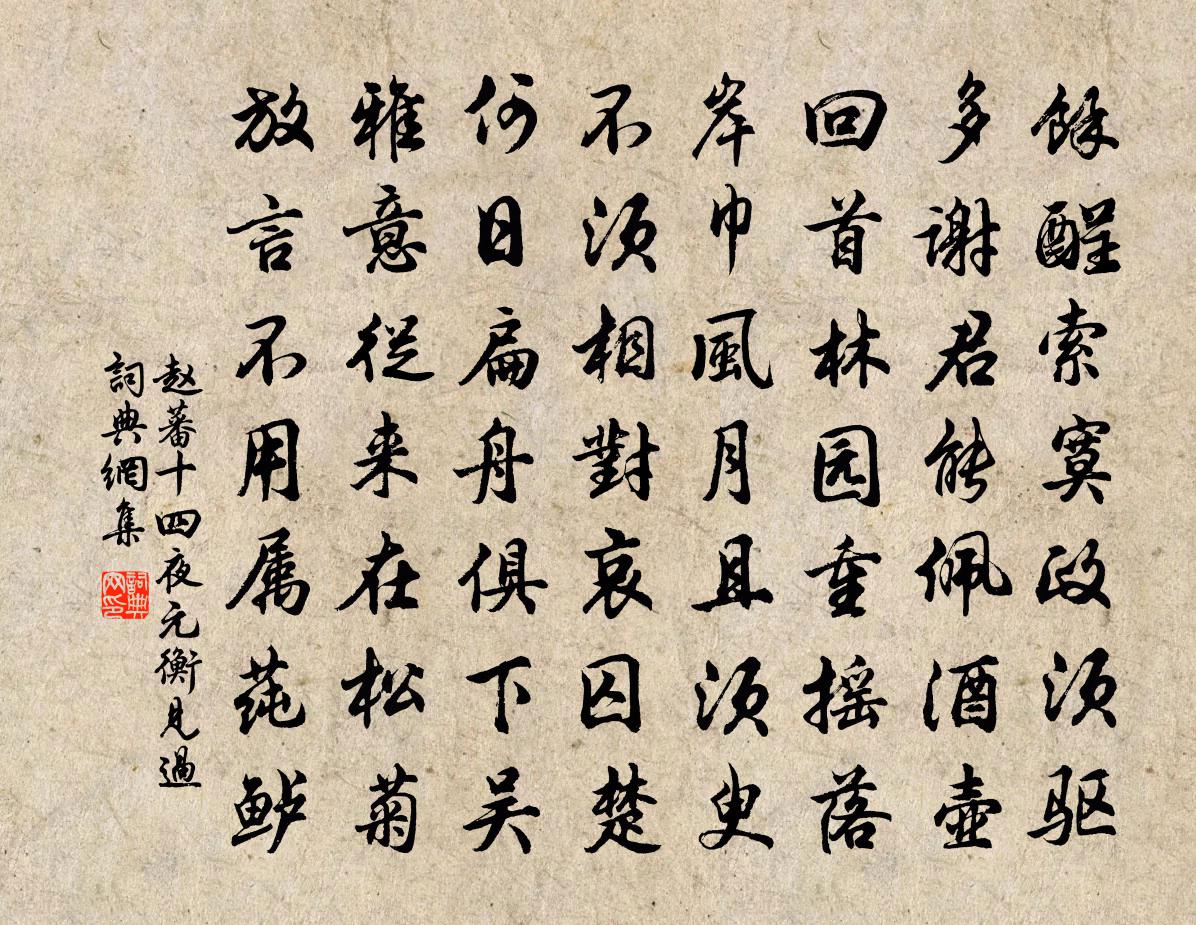 餘酲索寞政须驱
多谢君能佩酒壶
回首林园重摇落
岸巾風月且须臾
不须相對哀囚楚
何日扁舟俱下吴
雅意從来在松菊
放言不用属莼鲈
赵蕃十四夜元衡見過
詞典網集
詞典网印